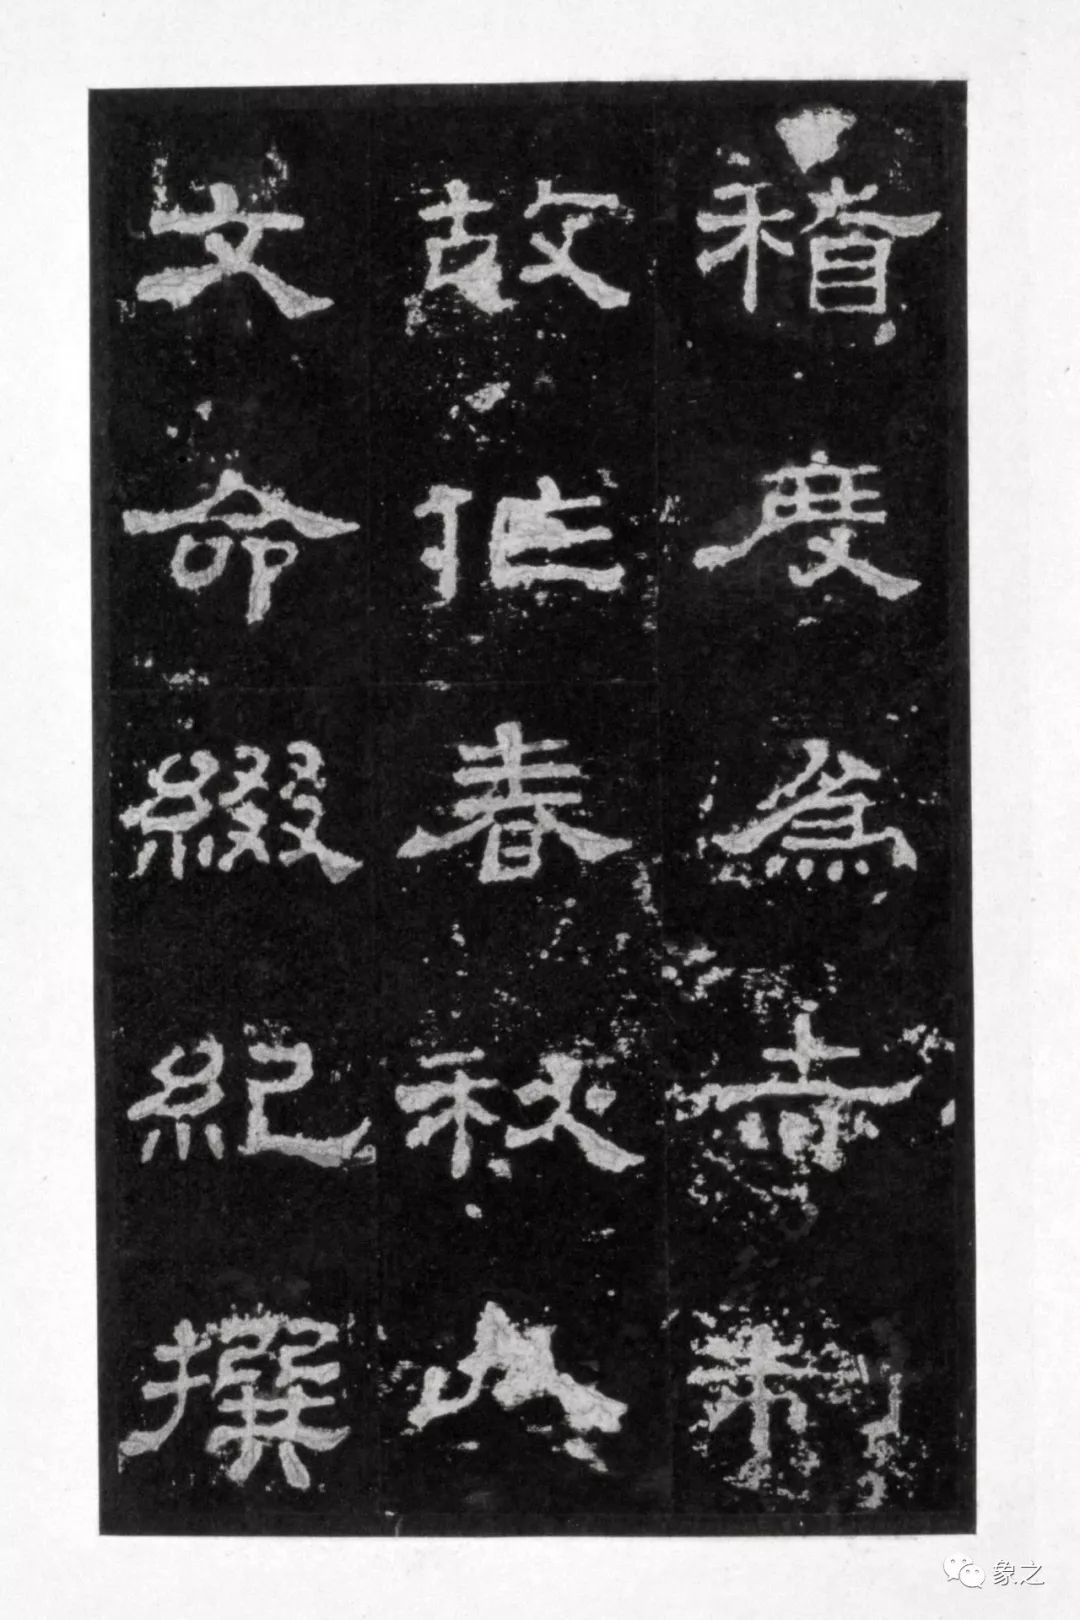 稽度為赤制
故作春秋以
文命綴紀撰
象之